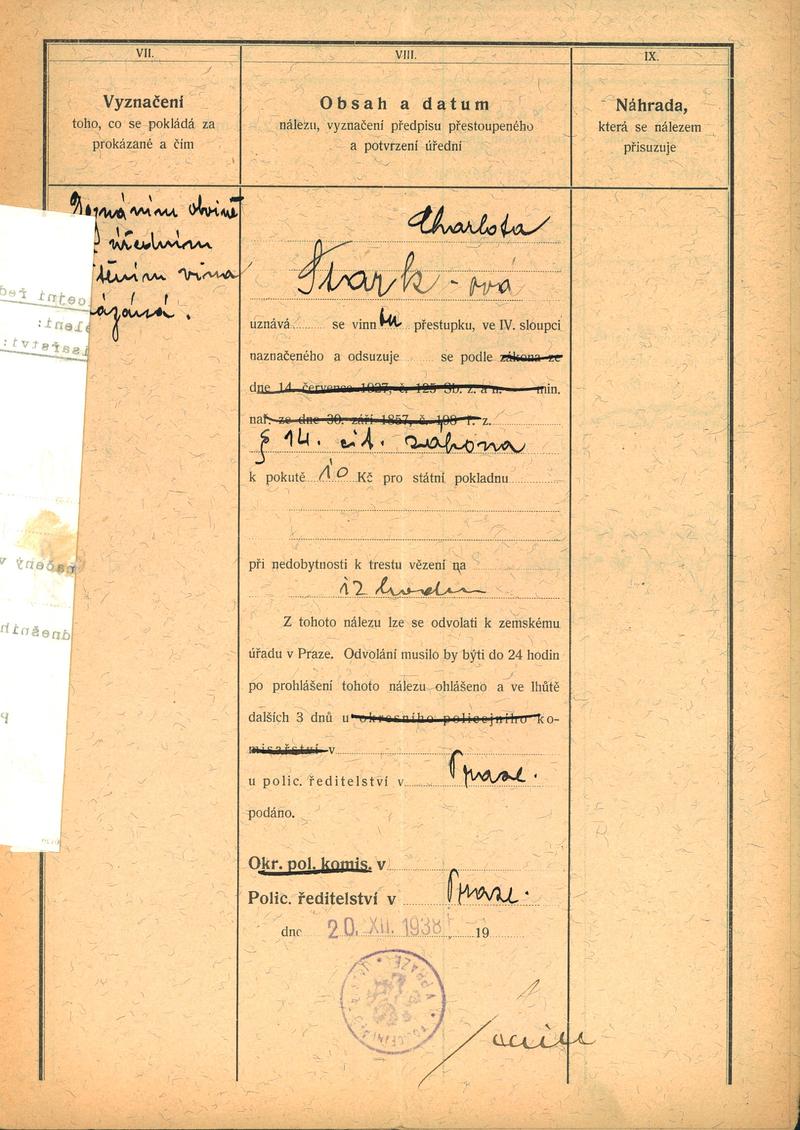 VII.
Vyznačení
toho, co se pokládá za
prokázané a čím
VIII.
Obsah a datum
nálezu, vyznačení předpisu přestoupeného
a potvrzení úřední
IX.
Náhrada,
která se nálezem
přisuzuje
obvině
úředním
vina
Charlota
Stark-ová
uznává se vinnou přestupku, ve IV. sloupci
naznačeného a odsuzuje se podle zákona ze
dne 14. července 1927, č. 125 Sb. z. a n. min.
nař. ze dne 30. září 1857, č. 198 ř. z.
§ 14. cit. zákona
k pokutě 10 Kč pro státní pokladnu
při nedobytnosti k trestu vězení na
12 hodin
Z tohoto nálezu lze se odvolati k zemskému
úřadu v Praze. Odvolání musilo by býti do 24 hodin
po prohlášení tohoto nálezu ohlášeno a ve lhůtě
dalších 3 dnů u okresního policejního ko-
misařství v
u polic. ředitelství v Praze.
podáno.
Okr. pol. komis. v
Polic. ředitelství v Praze.
dne 20. XII. 1938 19